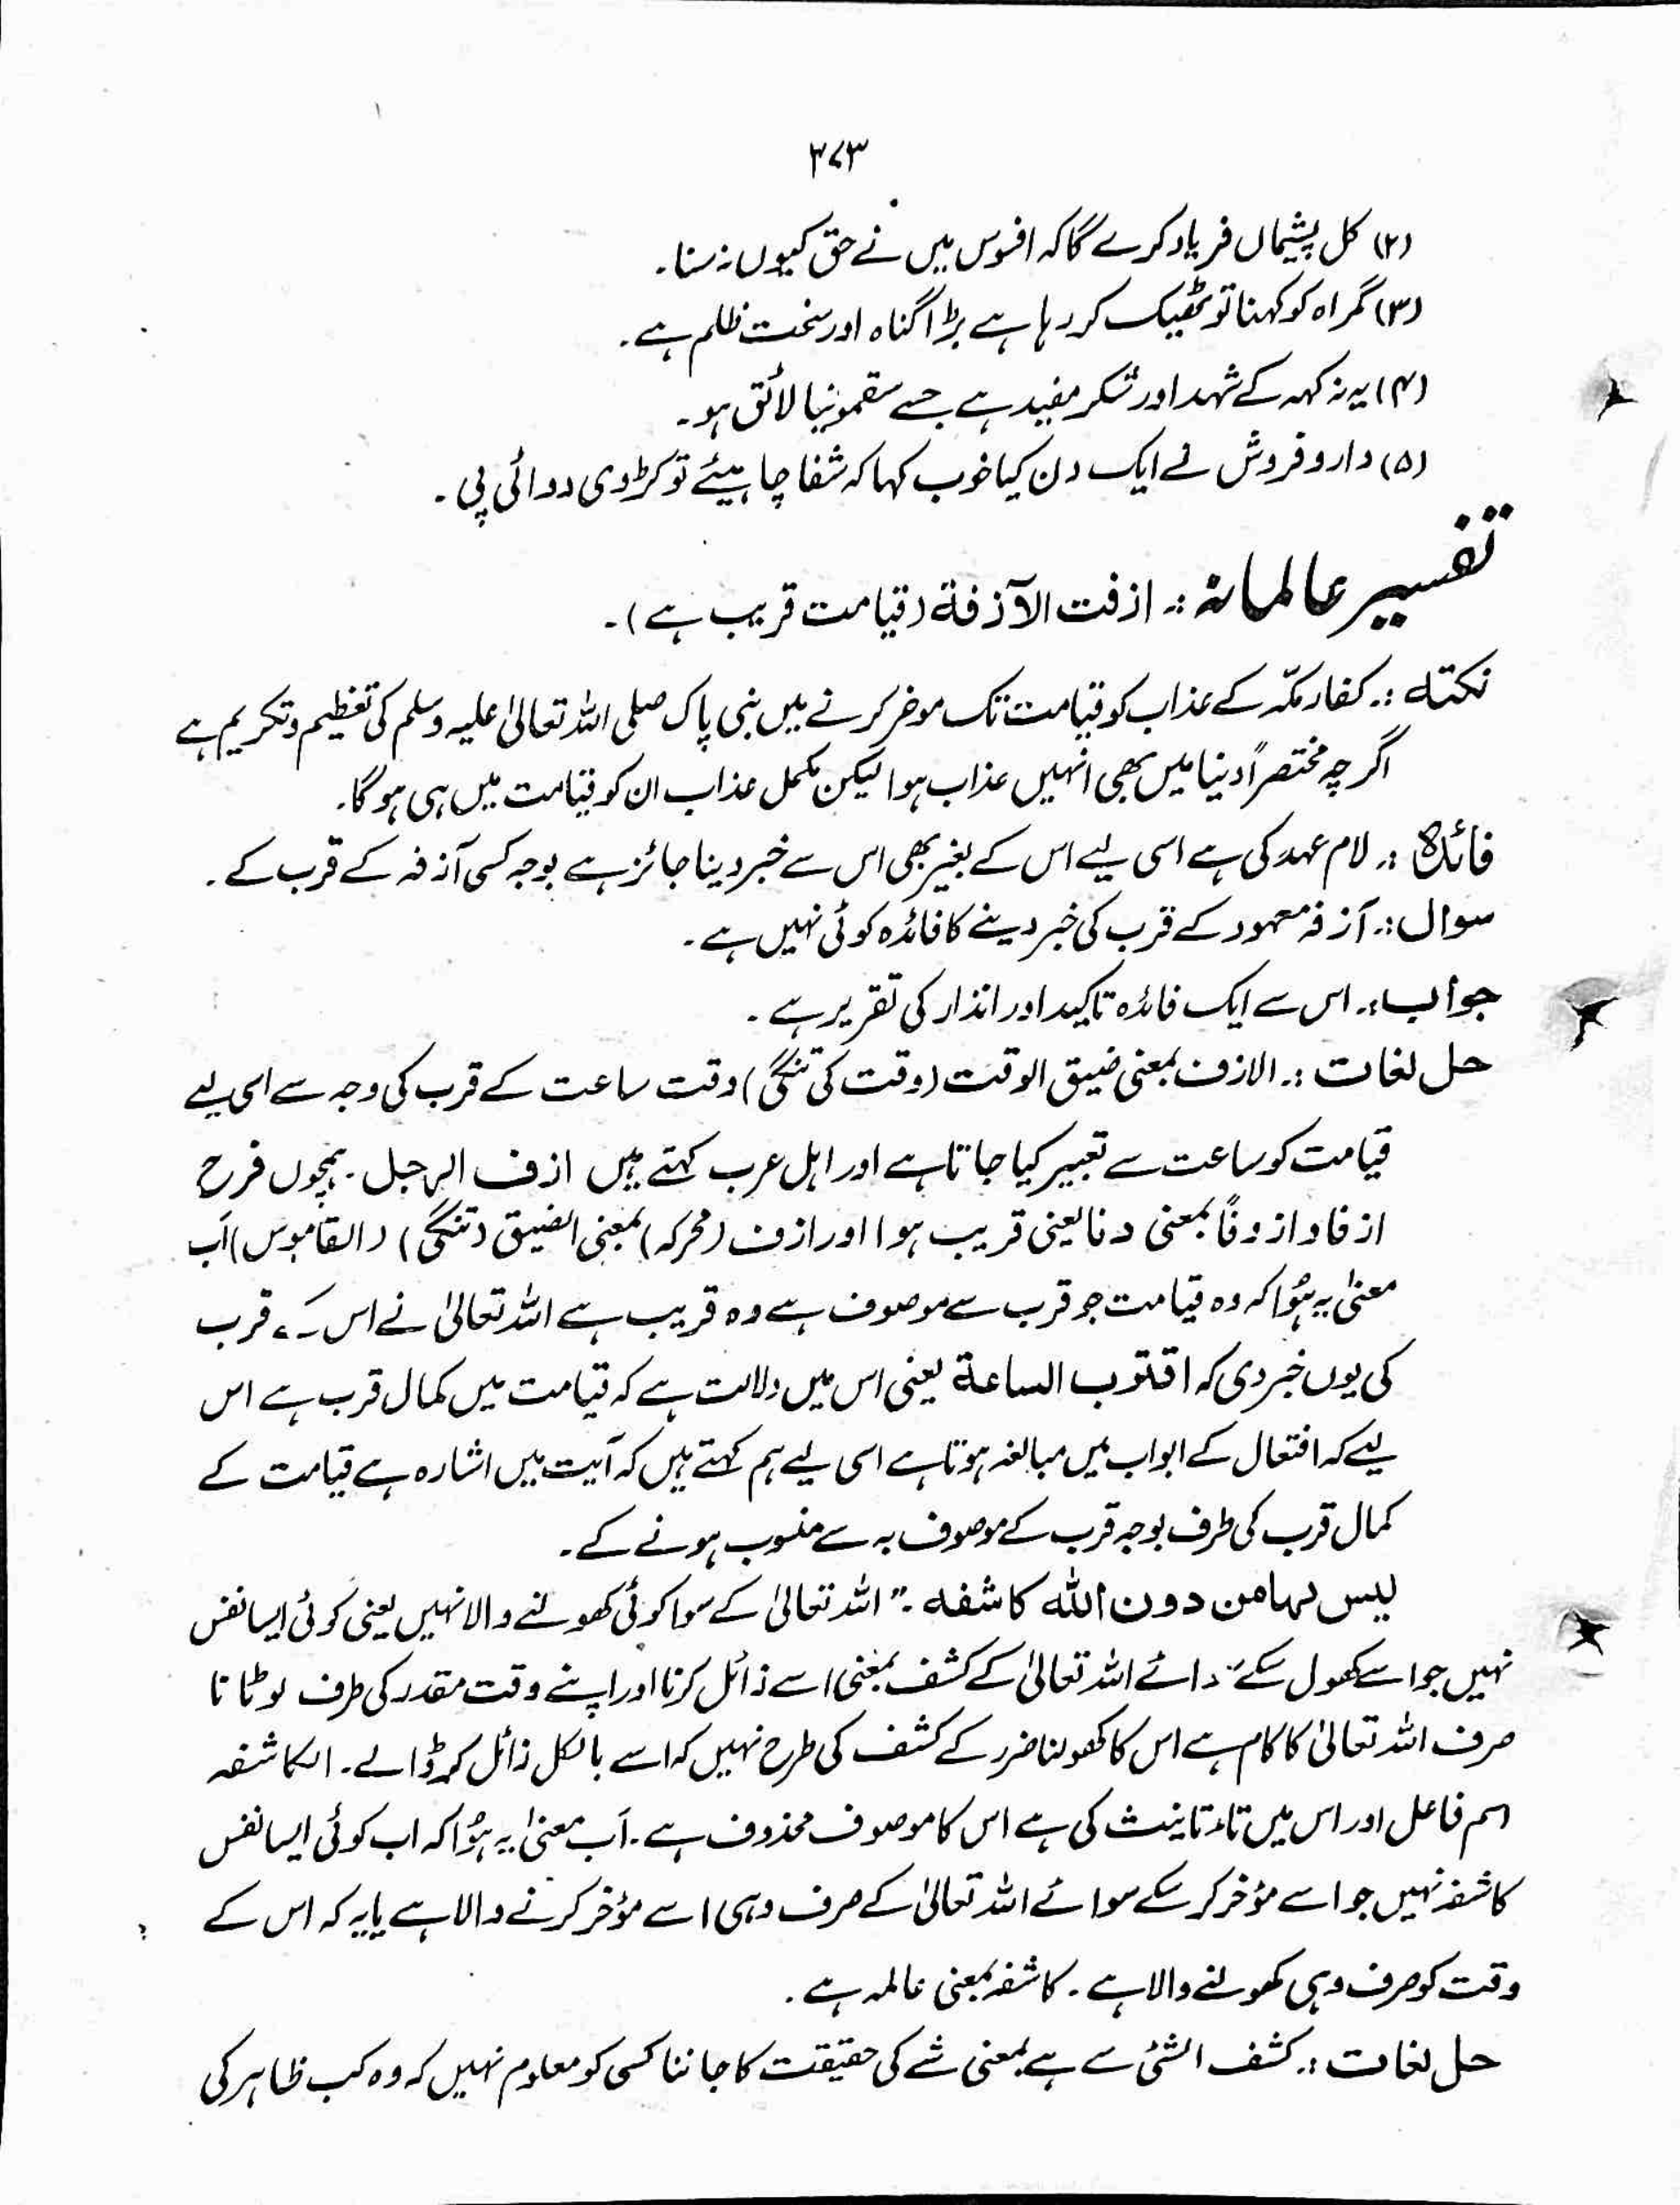 ۳۷۳
(۲) کل پشیماں فریاد کرے گا کہ افسوس میں نے حق کیوں نہ سنا۔
(۳) گمراہ کو کہنا تو ٹھیک کر رہا ہے بڑا گناہ اور سخت ظلم ہے۔
(۴) یہ نہ کہہ کے شہد اور شکر مفید ہے جسے سقمونیا لائق ہو۔
(۵) دارو فروش نے ایک دن کیا خوب کہا کہ شفا چاہیئے تو کڑوی دوائی پی۔
تفسیر عالمانہ :۔ ازفت الآزفة (قیامت قریب ہے)۔
نکتہ :۔ کفار مکّہ کے عذاب کو قیامت تک موخر کرنے میں نبی پاک صلی اللہ تعالیٰ علیہ وسلم کی تعظیم و تکریم ہے
اگرچہ مختصراً دنیا میں بھی انہیں عذاب ہوا لیکن مکمل عذاب ان کو قیامت میں ہی ہو گا۔
فائدہ :۔ لام عہد کی ہے اسی لیے اس کے بغیر بھی اس سے خبر دینا جائز ہے بوجہ کسی آزفہ کے قرب کے۔
سوال :۔ آزفہ معہود کے قرب کی خبر دینے کا فائدہ کوئی نہیں ہے۔
جواب :۔ اس سے ایک فائدہ تاکید اور انذار کی تقریر ہے۔
حل لغات :۔ الازف بمعنی ضیق الوقت (وقت کی تنگی) وقت ساعت کے قرب کی وجہ سے اسی لیے
قیامت کو ساعت سے تعبیر کیا جاتا ہے اور اہل عرب کہتے ہیں ازف الرجل۔ ہمچوں فرح
ازفا و ازوفًا بمعنی دنا یعنی قریب ہوا اور ازف (محرکہ) بمعنی الضیق (تنگی) (القاموس) اَب
معنیٰ یہ ہُوا کہ وہ قیامت جو قرب سے موصوف ہے وہ قریب ہے اللہ تعالیٰ نے اس کے قرب
کی یوں خبر دی کہ اقترب الساعة یعنی اس میں دلالت ہے کہ قیامت میں کمال قرب ہے اس
لیے کہ افتعال کے ابواب میں مبالغہ ہوتا ہے اسی لیے ہم کہتے ہیں کہ آیت میں اشارہ ہے قیامت کے
کمال قرب کی طرف بوجہ قرب کے موصوف بہ سے منسوب ہونے کے۔
لیس لہا من دون اللہ کاشفہ۔" اللہ تعالیٰ کے سوا کوئی کھولنے والا نہیں یعنی کوئی ایسا نفس
نہیں جو اسے کھول سکے" وائے اللہ تعالیٰ کے کشف بمعنی اسے زائل کرنا اور اپنے وقت مقدر کی طرف لوٹانا
صرف اللہ تعالیٰ کا کام ہے اس کا کھولنا ضرر کے کشف کی طرح نہیں کہ اسے بالکل زائل کر ڈالے۔ الکاشفہ
اسم فاعل اور اس میں تاء تانیث کی ہے اس کا موصوف محذوف ہے۔ اَب معنیٰ یہ ہُوا کہ اب کوئی ایسا نفس
کاشفہ نہیں جو اسے مؤخر کر سکے سوائے اللہ تعالیٰ کے صرف وہی اسے مؤخر کرنے والا ہے یا یہ کہ اس کے
وقت کو صرف وہی کھولنے والا ہے۔ کاشفہ بمعنی عالمہ ہے۔
حل لغات :۔ کشف الشئ سے ہے بمعنی شے کی حقیقت کا جاننا کسی کو معلوم نہیں کہ وہ کب ظاہر کی